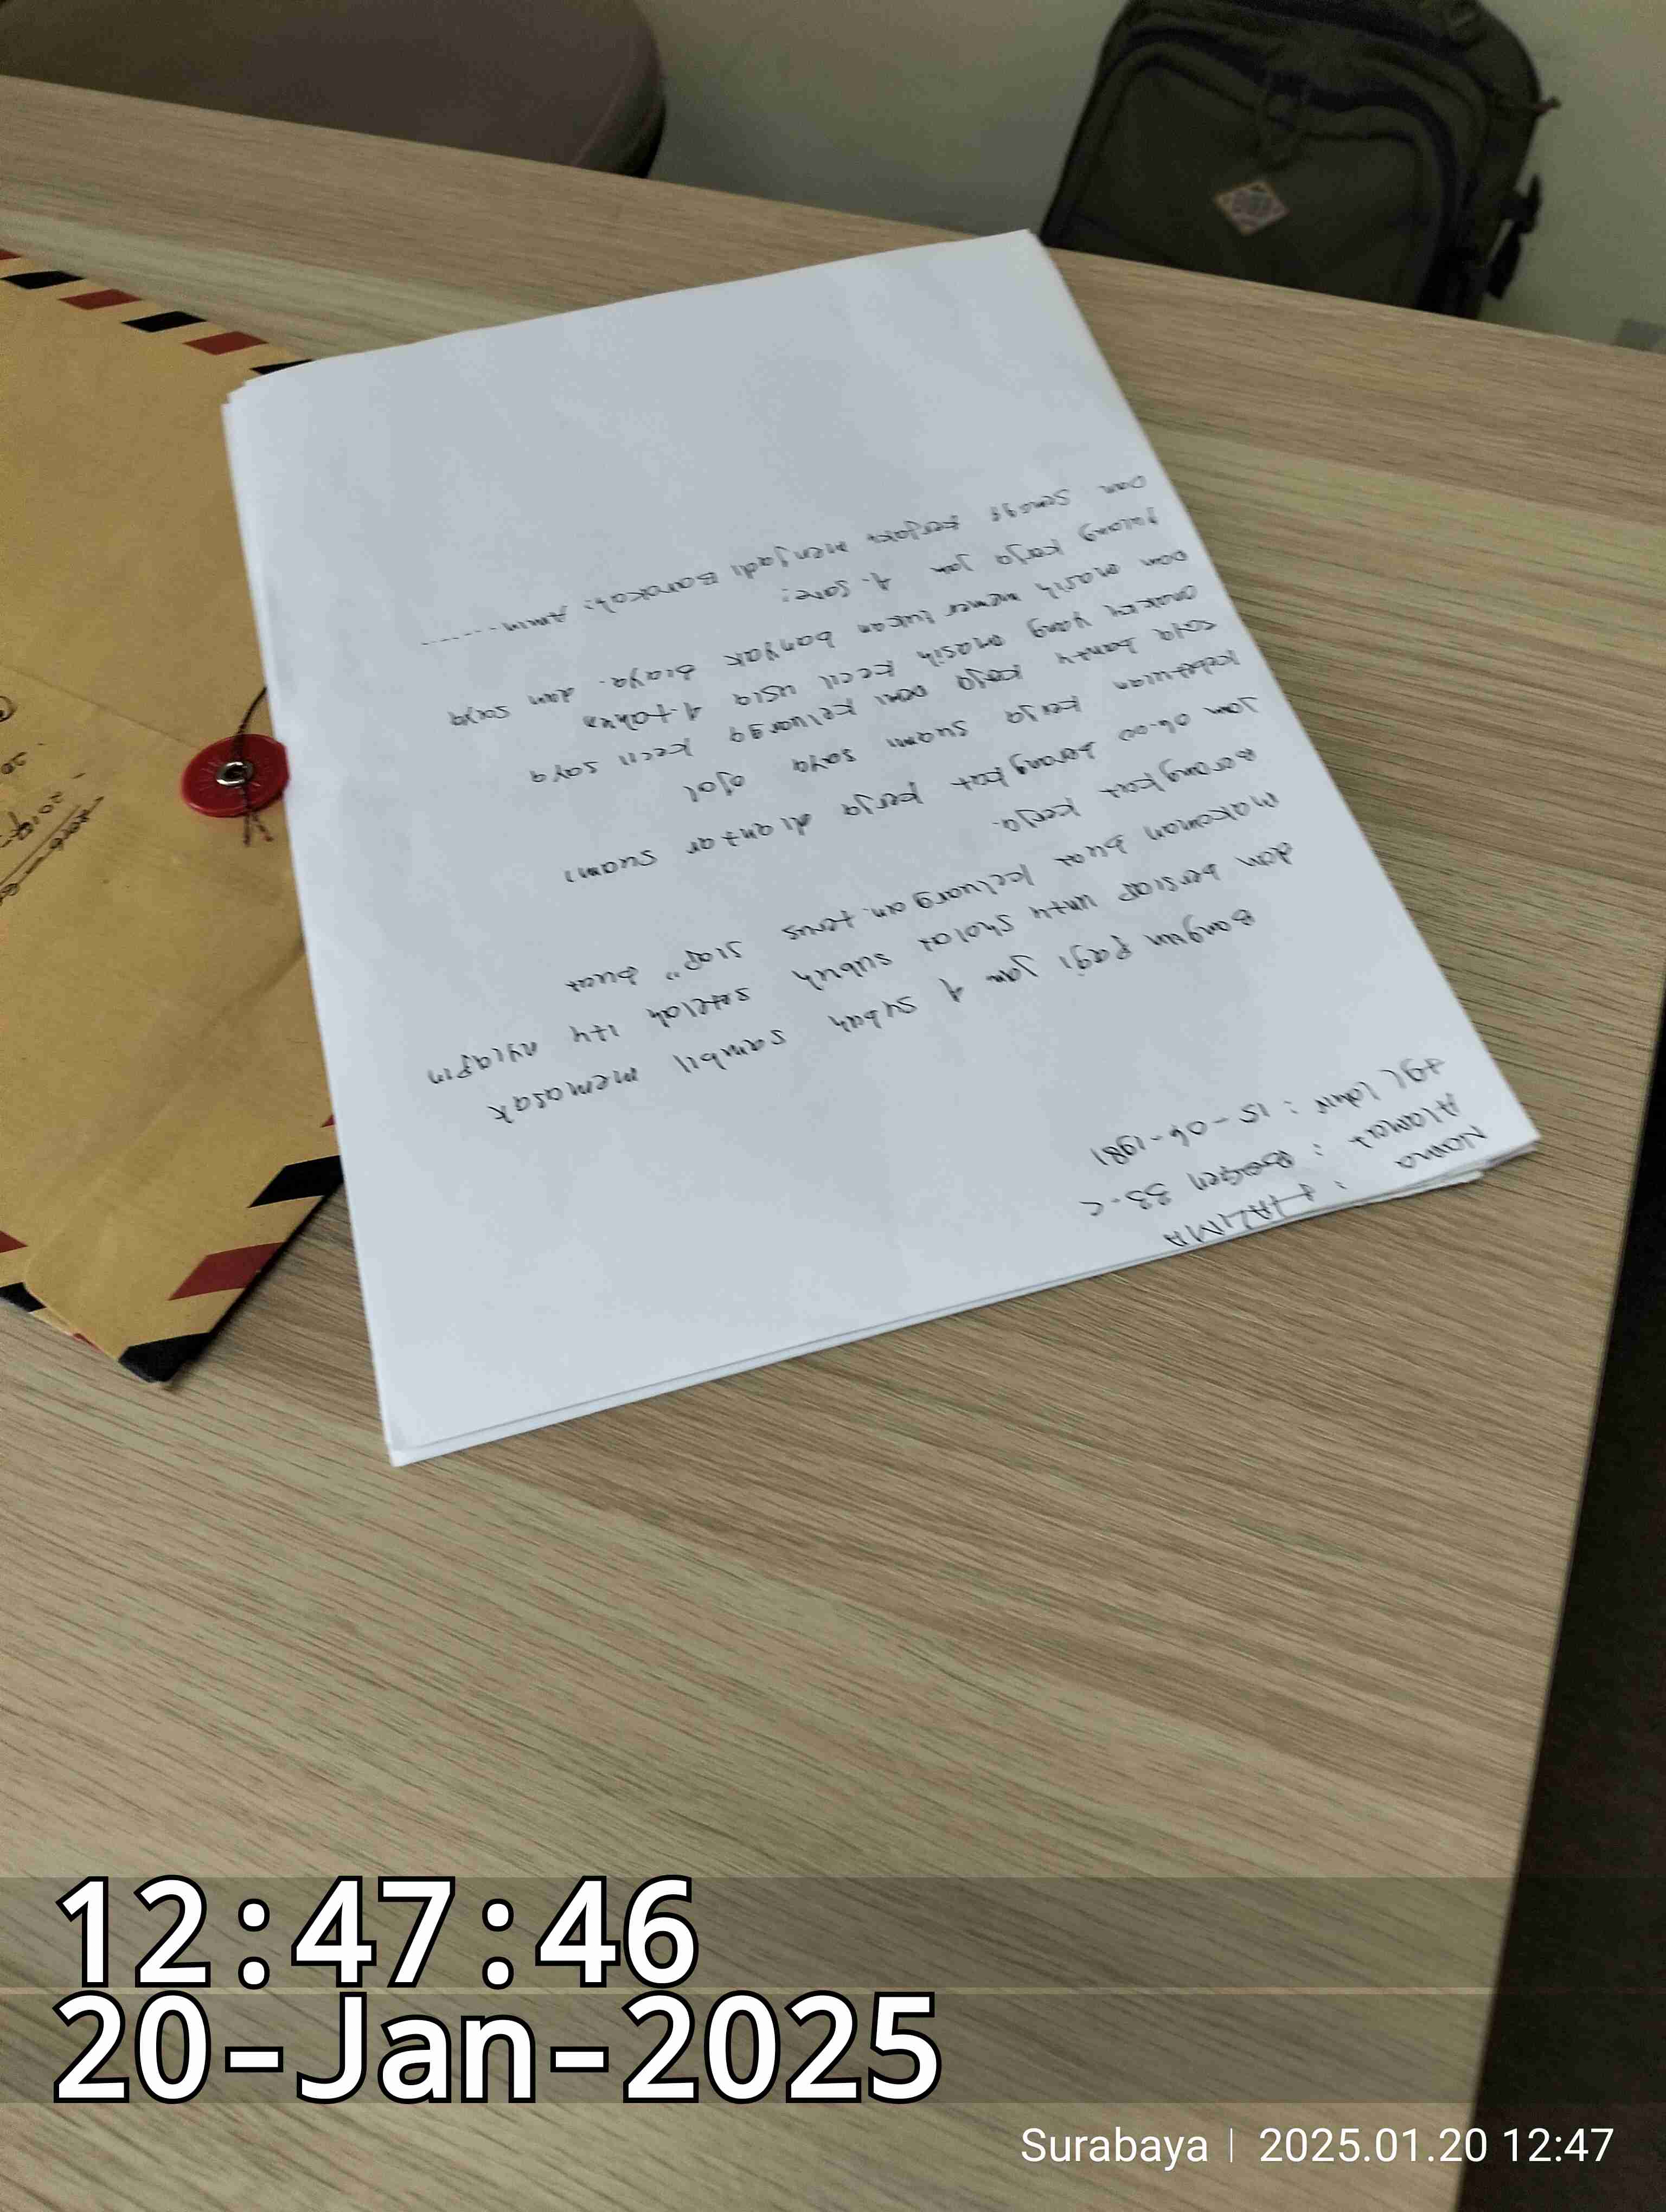 Nama : HALIMA
Alamat : Bogen 33-C
tgl lahir : 15-06-1981
Bangun Pagi jam 4 subuh sambil memasak
dan bersiap untu sholat subuh setelah itu nyiapin
Makanan buat keluargan. terus siap" buat
Berangkat kerja.
Jam 06.00 berangkat kerja di antar suami
kebetulan kerja suami saya ojol
saya bantu kerja Demi keluarga kecil saya
anakku yang masih kecil usia 4 tahun
Dan masih memer lukan banyak biaya. dan saya
pulang kerja jam 4. sore:
Dan Semoga kerjaku Menjadi Barokah: Amin........
12:47:46
20-Jan-2025
Surabaya | 2025.01.20 12:47